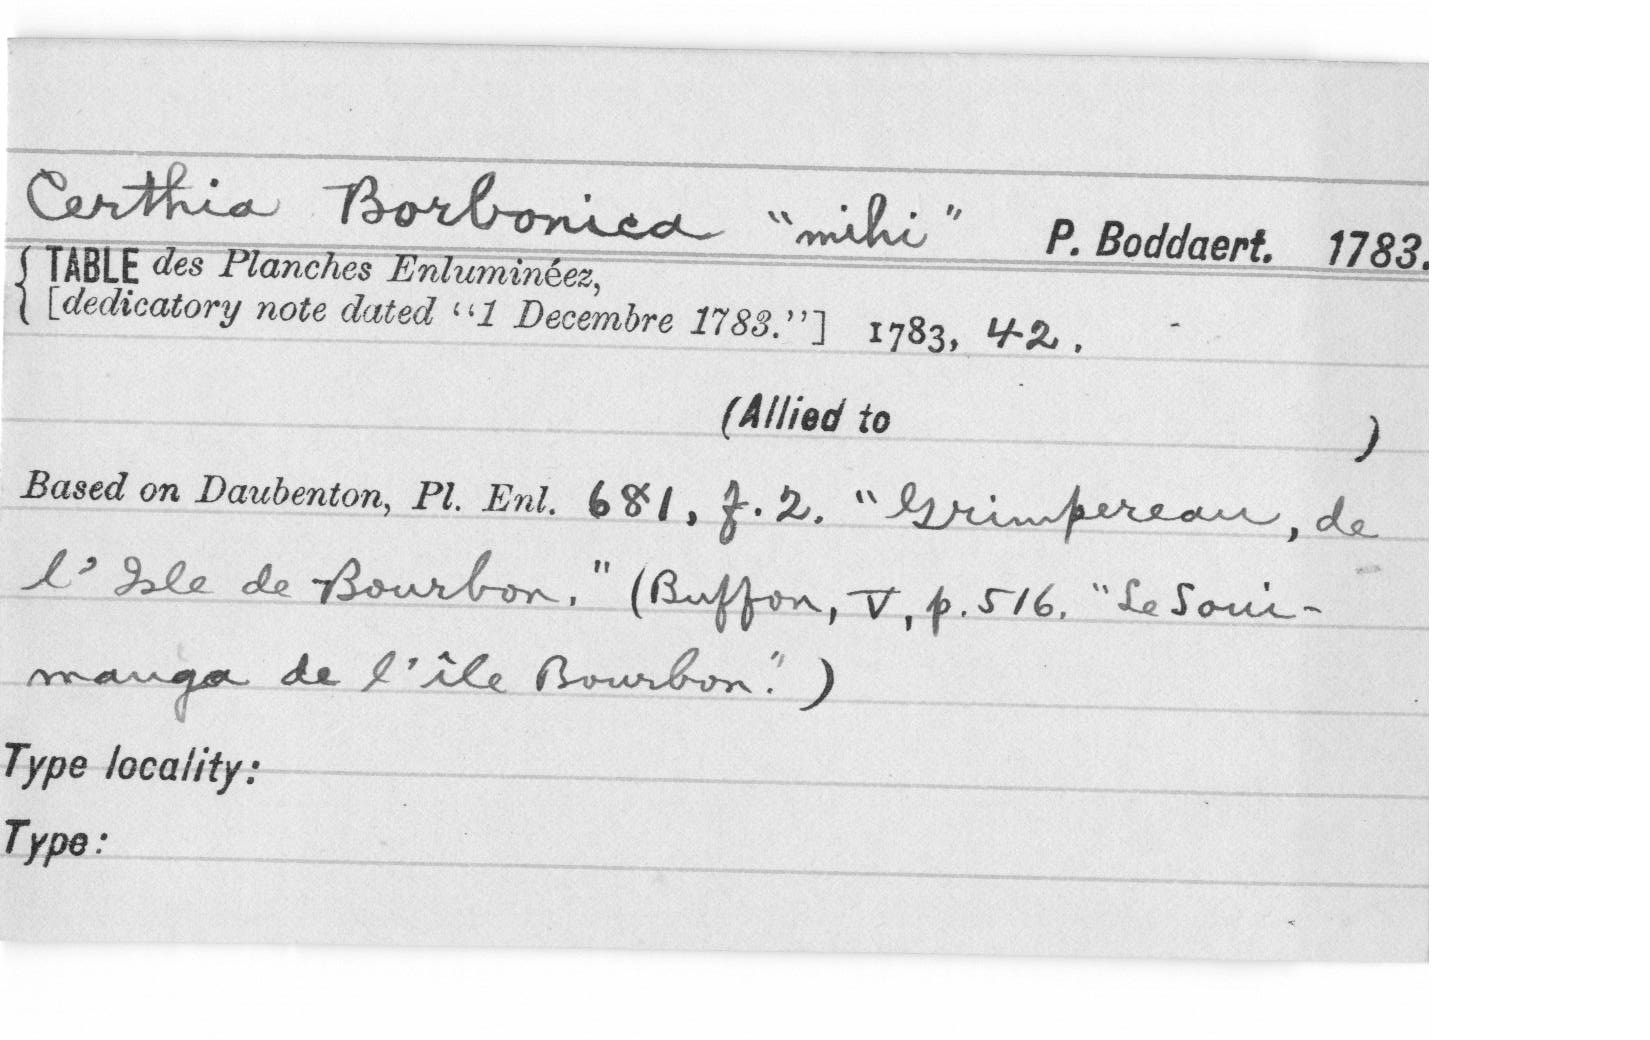 Certhia Borbonica "mihi" P. Boddaert. 1783.
TABLE des Planches Enluminéez,
[dedicatory note dated "1 Decembre 1783."] 1783, 42.
(Allied to )
Based on Daubenton, Pl. Enl. 681, f. 2. "Grimpereau, de
l'Isle de Bourbon." (Buffon, V, p. 516. "Le Soui-
manga de l'île Bourbon.")
Type locality:
Type: